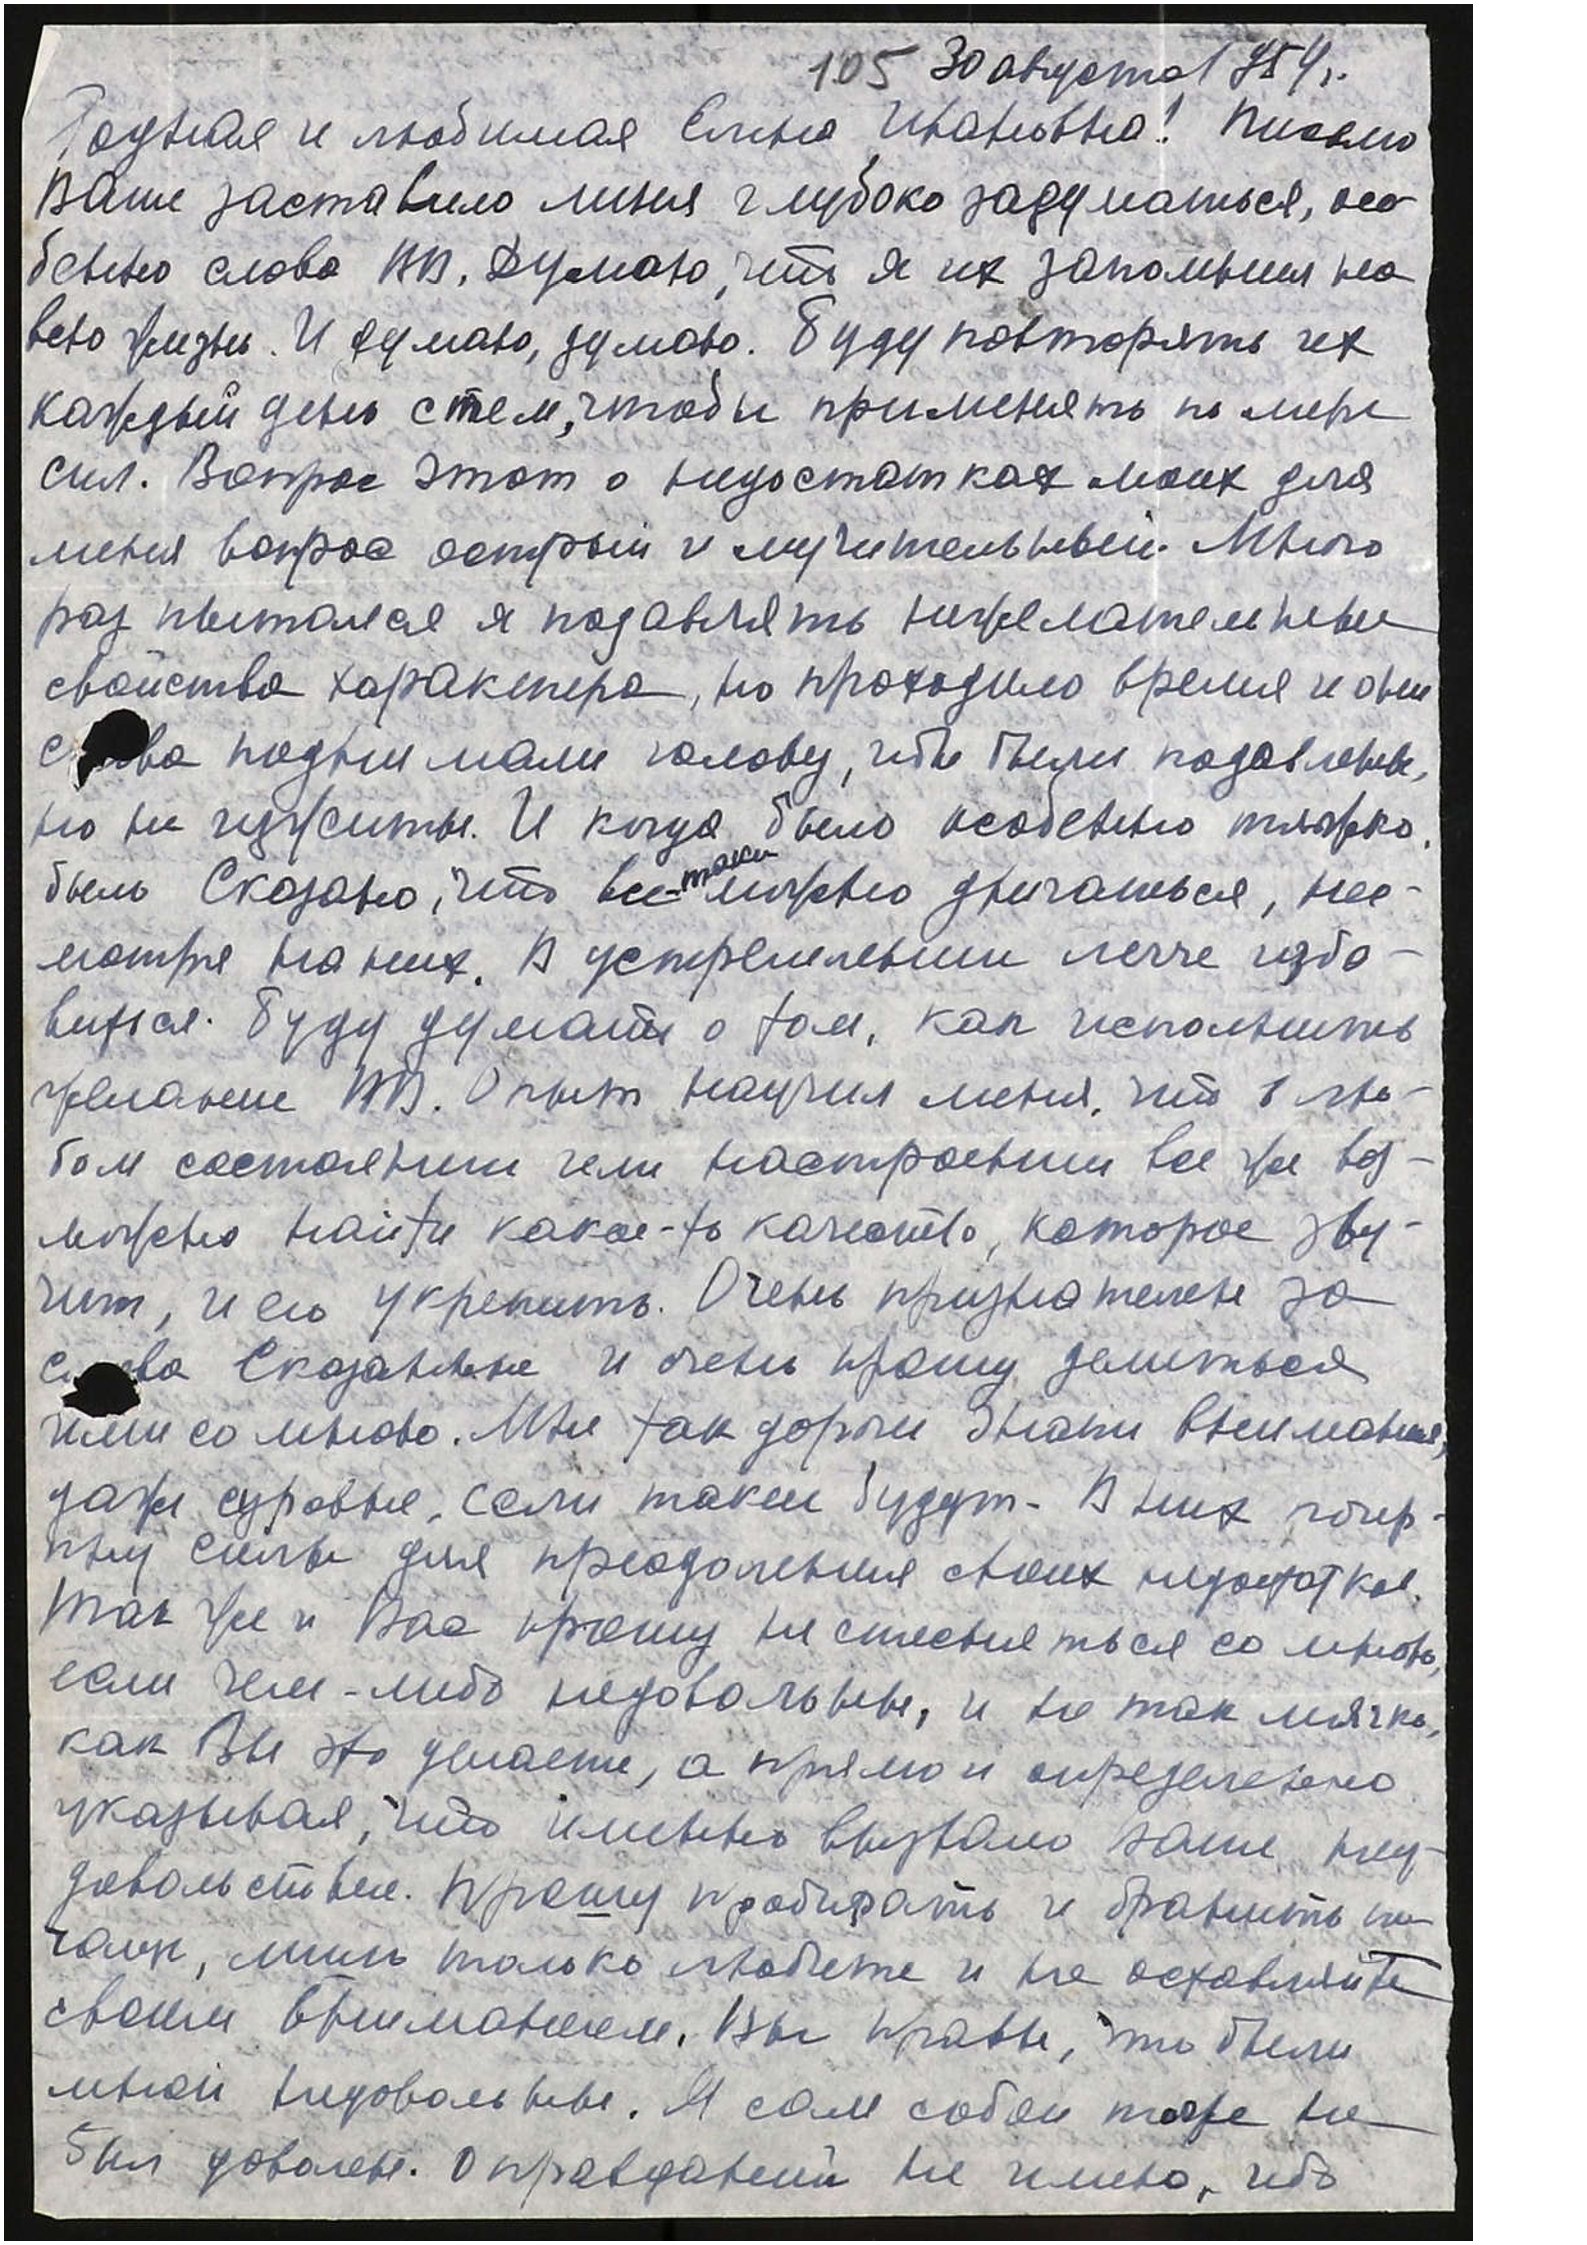 105 30 августа 1954 г.
Родная и любимая Елена Ивановна! Письмо
Ваше заставило меня глубоко задуматься, осо
бенно слова ВВ. Думаю, что я их запомнил на
всю жизнь. И думаю, думаю. Буду повторять их
каждый день с тем, чтобы применять по мере
сил. Вопрос этот о недостатках моих для
меня вопрос острый и мучительный. Много
раз пытался я подавлять нежелательные
свойства характера, но проходило время и они
снова поднимали голову, ибо были подавлены,
но не изжиты. И когда было особенно тяжко,
было Сказано, что все-таки можно двигаться, нес-
мотря на них. В устремлении легче изба-
виться. Буду думать о том, как исполнить
желание ВВ. Опыт научил меня, что в лю-
бом состоянии или настроении все же воз-
можно найти какое-то качество, которое зву-
чит, и его укрепить. Очень признателен за
слова Сказанные и очень прошу делиться
ими со мною. Мне так дороги знаки внимания,
даже суровые, если такие будут. В них чер-
пну силы для преодоления своих недостатков.
Так же и Вас прошу не стесняться со мною,
если чем-либо недовольны, и не так мягко,
как Вы это делаете, а прямо и определенно
указывая, что именно вызвало Ваше неу-
довольствие. Прошу пробирать и бранить
лишь только любите и не оставляйте
своим вниманием. Вы правы, что были
мной недовольны. Я сам собой тоже не
был доволен. Оправданий не имею, ибо